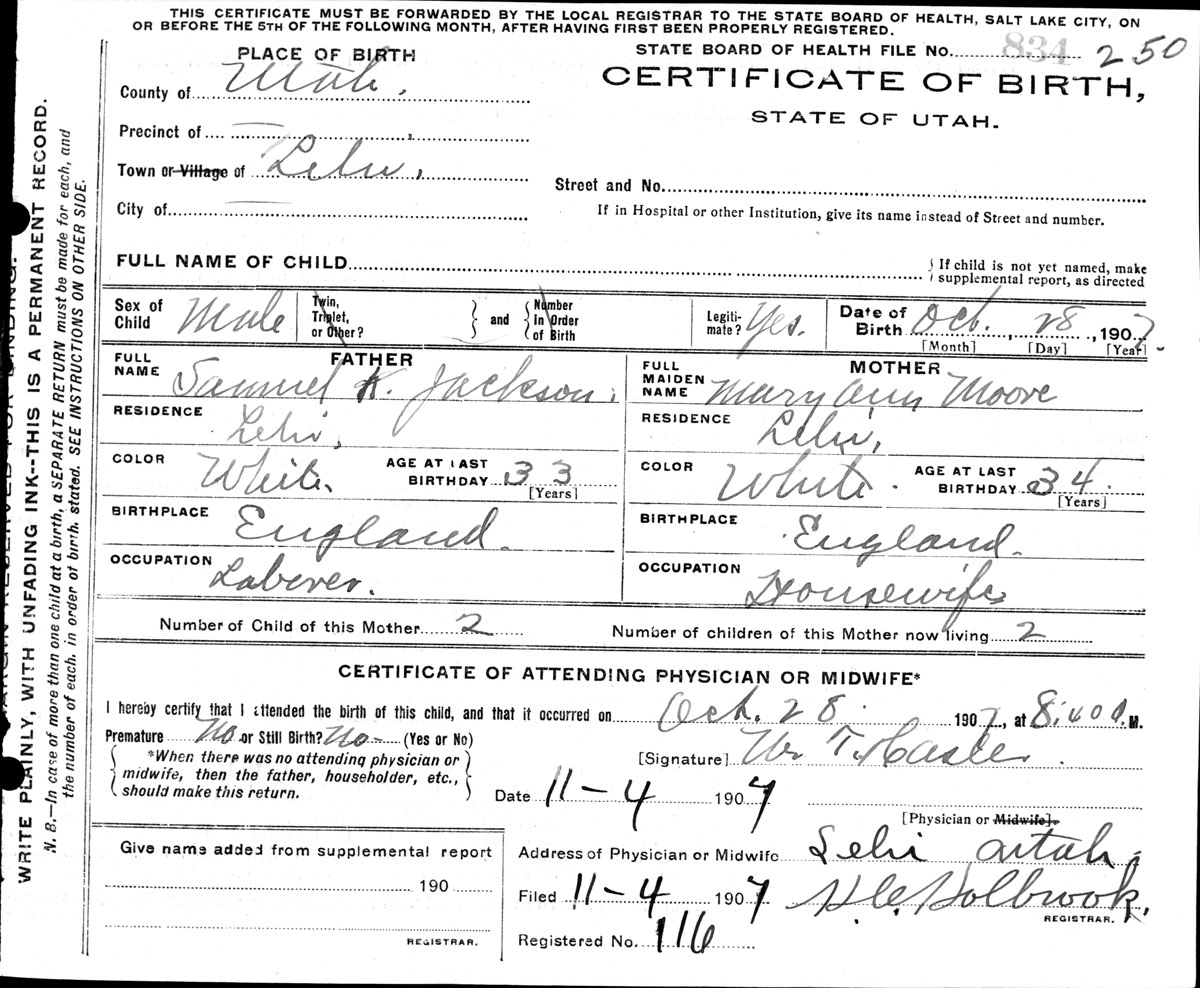 THIS CERTIFICATE MUST BE FORWARDED BY THE LOCAL REGISTRAR TO THE STATE BOARD OF HEALTH, SALT LAKE CITY, ON
OR BEFORE THE 5TH OF THE FOLLOWING MONTH, AFTER HAVING FIRST BEEN PROPERLY REGISTERED.
PLACE OF BIRTH
STATE BOARD OF HEALTH FILE No. 834 250
County of Utah.
CERTIFICATE OF BIRTH,
STATE OF UTAH.
Precinct of
Town or Village of Lehi,
Street and No.
City of
If in Hospital or other Institution, give its name instead of Street and number.
FULL NAME OF CHILD
If child is not yet named, make
supplemental report, as directed
Sex of Child Male
Twin, Triplet, or Other? and Number in Order of Birth
Legiti-mate? Yes.
Date of Birth Oct. 28, 1907.
[Month] [Day] [Year]
FATHER
FULL NAME Samuel K. Jackson.
MOTHER
FULL MAIDEN NAME Mary Ann Moore
RESIDENCE Lehi,
RESIDENCE Lehi,
COLOR White. AGE AT LAST BIRTHDAY 33
[Years]
COLOR White. AGE AT LAST BIRTHDAY 34.
[Years]
BIRTHPLACE England.
BIRTHPLACE England.
OCCUPATION Laberer.
OCCUPATION Housewife
Number of Child of this Mother 2
Number of children of this Mother now living 2
CERTIFICATE OF ATTENDING PHYSICIAN OR MIDWIFE*
I hereby certify that I attended the birth of this child, and that it occurred on Oct. 28. 1907, at 8:40 a. M.
Premature No or Still Birth? No (Yes or No)
*When there was no attending physician or
midwife, then the father, householder, etc.,
should make this return.
[Signature]
Date 11-4 1907
[Physician or Midwife].
Give name added from supplemental report
190
REGISTRAR.
Address of Physician or Midwife Lehi Utah.
Filed 11-4 1907 H.C. Holbrook.
REGISTRAR.
Registered No. 116
WRITE PLAINLY, WITH UNFADING INK--THIS IS A PERMANENT RECORD.
N. B.—In case of more than one child at a birth, a SEPARATE RETURN must be made for each, and
the number of each, in order of birth, stated. SEE INSTRUCTIONS ON OTHER SIDE.